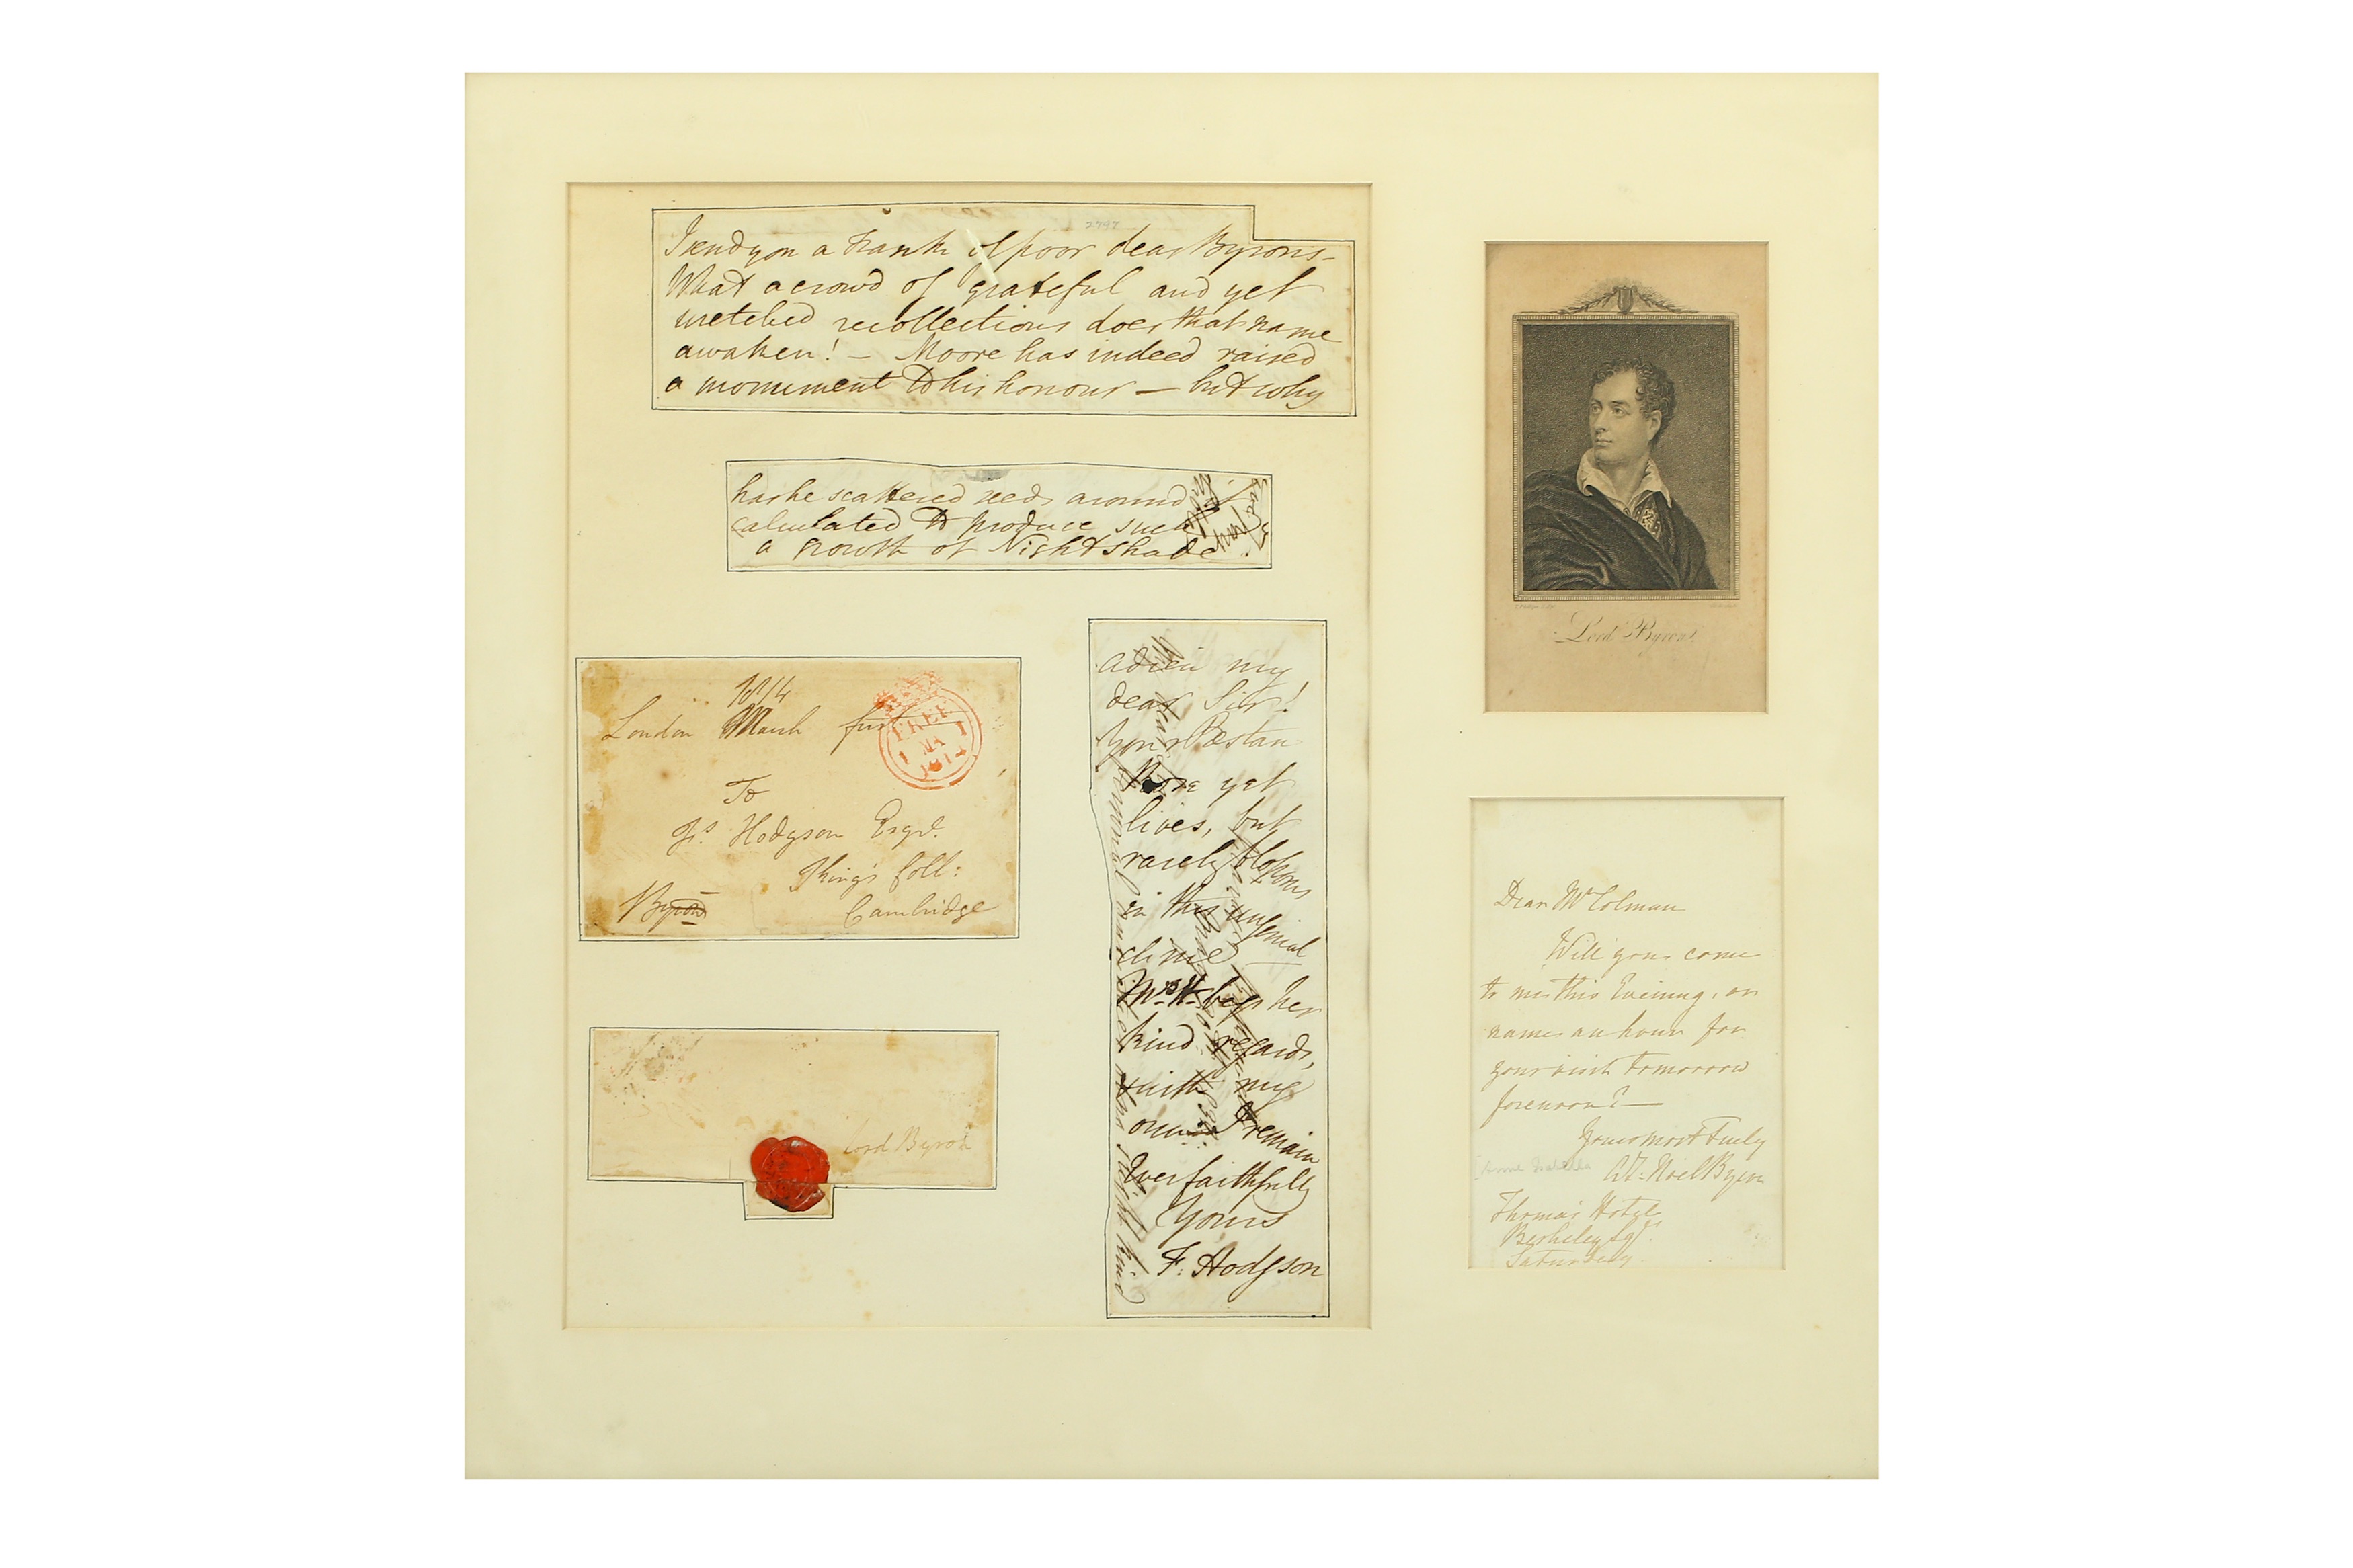 2797
I send you a Frank of poor dear Byron's –
What a crowd of grateful and yet
wretched recollections does that name
awaken! – Moore has indeed raised
a monument to his honour – but why
has he scattered seeds around it
calculated to produce such
a growth of Nightshade
1814
London March first
FREE
1 MA 1
1814
To
Fs. Hodgson Esqre.
King's Coll:
Cambridge
Byron
Lord Byron
Adieu my
dear Sir!
Your Pæstan
Rose yet
lives, but
rarely blossoms
in this ungenial
clime
Mrs. H. begs her
kind regards,
with my
own I remain
Ever faithfully
Yours
F. Hodgson
Lord Byron
Dear Mr Colman
Will you come
to me this Evening, or
name an hour for
your visit tomorrow
forenoon? —
Yours most truly
Anne Isabella
A I. Noel Byron
Thomas's Hotel
Berkeley Sq.
Saturday